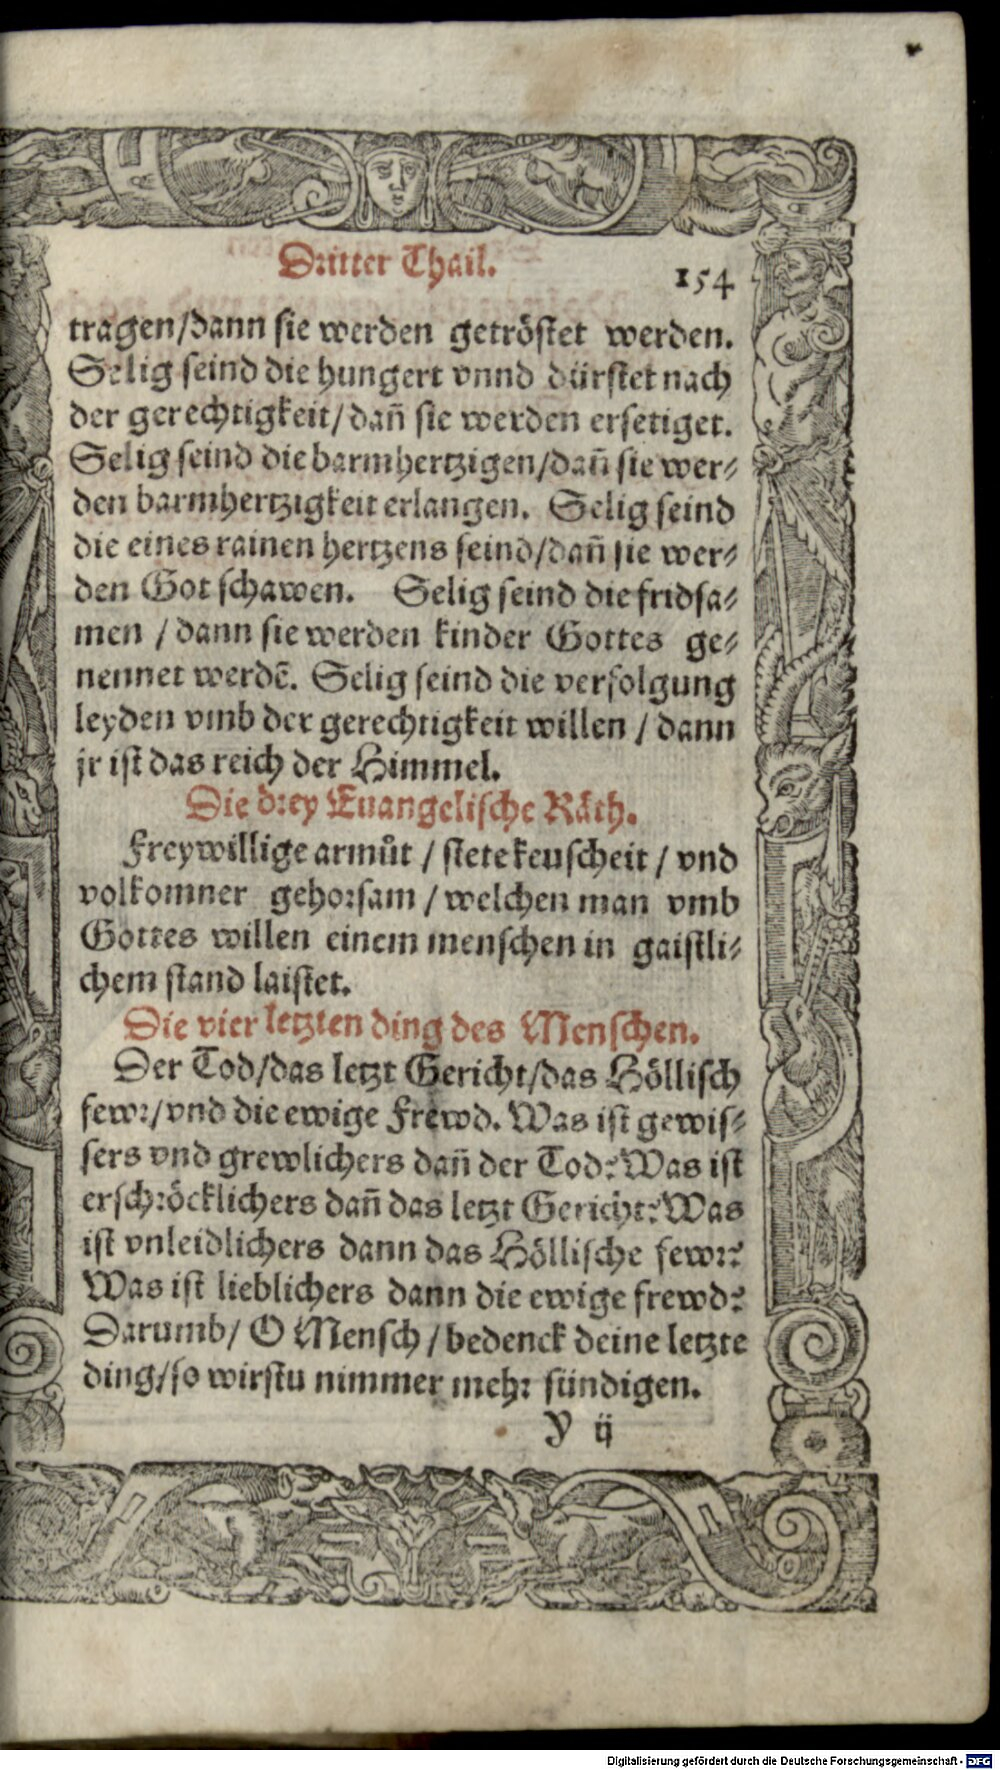 Dritter Thail. 154
tragen/dann sie werden getröstet werden.
Selig seind die hungert vnnd dürstet nach
der gerechtigkeit/dañ sie werden ersetiget.
Selig seind die barmhertzigen/dañ sie wer⸗
den barmhertzigkeit erlangen. Selig seind
die eines rainen hertzens seind/dañ sie wer⸗
den Got schawen. Selig seind die fridsa⸗
men / dann sie werden kinder Gottes ge⸗
nennet werdē. Selig seind die verfolgung
leyden vmb der gerechtigkeit willen / dann
jr ist das reich der Himmel.
Die drey Euangelische Räth.
Freywillige armůt / stete keuscheit / vnd
volkomner gehorsam / welchen man vmb
Gottes willen einem menschen in gaistli⸗
chem stand laistet.
Die vier letzten ding des Menschen.
Der Tod/das letzt Gericht/das Höllisch
fewr/vnd die ewige Frewd. Was ist gewis⸗
sers vnd grewlichers dañ der Tod? Was ist
erschröcklichers dañ das letzt Gericht? Was
ist vnleidlichers dann das Höllische fewr?
Was ist lieblichers dann die ewige frewd?
Darumb/ O Mensch / bedenck deine letzte
ding/so wirstu nimmer mehr sündigen.
Y ij
Digitalisierung gefördert durch die Deutsche Forschungsgemeinschaft - DFG